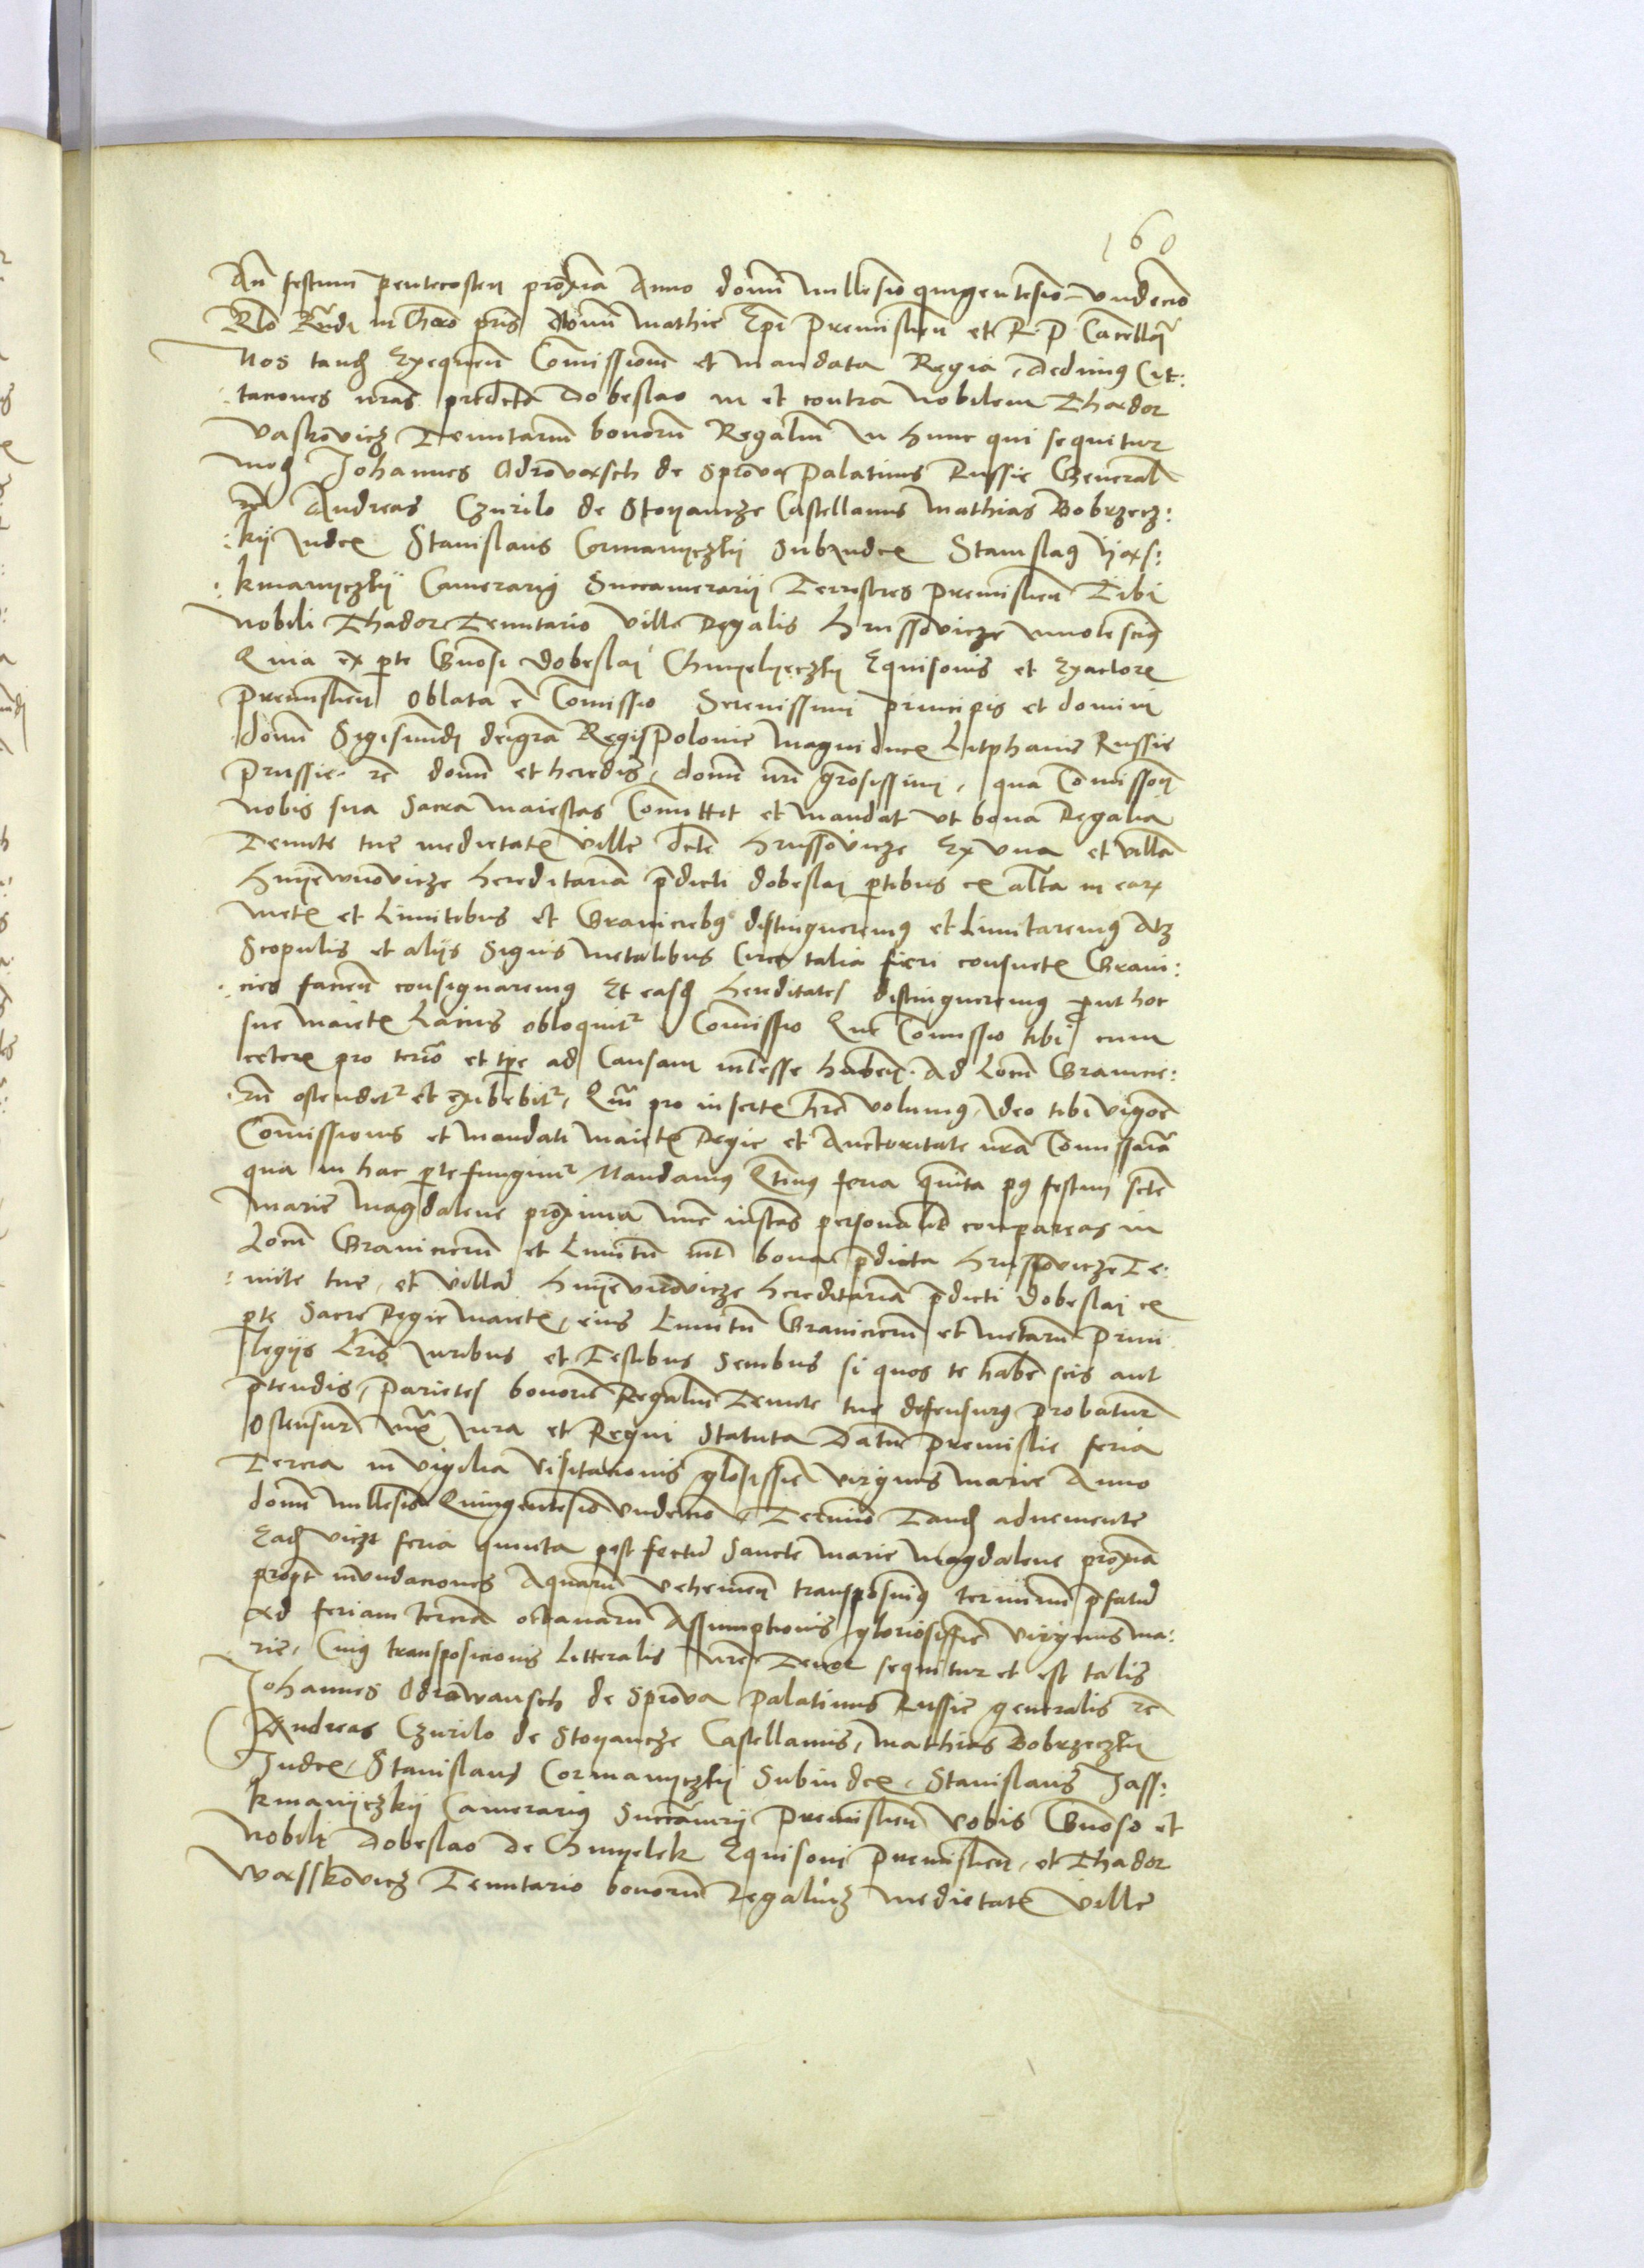 160
An festum pentecosten proxia Anno domi millesimo quingentesimo undecio
Rlo Rndi in Chro pris domi Mathie Epi Premislien et R P Cancellrij
Nos tandem Exequen Comissionem et mandata Regia, dedimus Cit:
:taciones nras predicto Dobeslao in et contra nobilem Thador
Vaskovicz Tenutarium bonorum Regalium in hunc qui sequitur
modum Johannes Odrovansch de Sprova Palatinus Russie General
Andreas Czurilo de Stoyancze Castellanus Mathias Dobrzecz:
:kij Iudex Stanislaus Cormanyczkij Subiudex Stanislaus Yaxs:
:kmanyczkij Camerarius Succamerarii Terrestres Premislien Tibi
Nobili Thador Tenutario ville Regalis Hrussovicze
Quia ex pte Gnosi Dobeslai Chmyelyeczkij Equisonis et Exactore
Premislien oblata e Comissio Serenissimi principis et domini
domi Sigismundi dei gra Regis Polonie Magni ducis Litphanie Russie
Prussie re domi et heredis, domi nri grosissimi, qua Comissione
nobis sua Sacra Maiestas Comittit et mandat ut bona Regalia
Tenute tue medietatem ville dicte Hrussovicze Ex una et villam
Hnijewnovicze hereditariam predicti dobeslai partibus ex altera in earum
metis et Limitibus et Graniciebus distingueremus et Limitaremus Atque
Scopulis et alijs Signis metalibus Circa talia fieri consuetis Grani:
:cies facien consignaremus Et easdem hereditates distingueremus prout hoc
sue maiestatis Lacius obloquitur Comissio Que Comissio tibi cum
ceteris pro termino et tpe ad Causam interesse haben. Ad Locum Granicie:
:rum ostenditur et exibebitur, Quam pro inserta here volumus, Ideo tibi vigore
Comissionis et mandati Maiestatis Regie et Auctoritate nra Comissaria
qua in hac parte fungimur Mandamus Quatenus feria quinta post festum scte
Marie Magdalene proxima nunc instans personaliter compareas in
Locum Granicierum et Limitum inter bona predicta Hrussovicze Te:
:nute tue, et villam Hnijewnovicze hereditariam predicti Dobeslai ex
parte Sacre Regie Maiestatis, eius Limitum Granicierum et metarum Privi
legijs Lris Iuribus et Testibus Senibus si quos te habere scis aut
pretendis, parietes bonorum Regalium Tenute tue defensurus probaturus
Ostensurus iuxta Iura et Regni Statuta Datum Premislie feria
Tercia in vigilia visitacionis glosissime virginis Marie Anno
domi millesimo Quingentesimo undecimo, Termino Tandem adveniente
Eadem videlicet feria quinta post festum Sancte Marie Magdalene proxima
propter inundaciones Aquarum vehemen transposuimus terminum prefatum
ad feriam terciam octavarum Assumptionis gloriosissime virginis ma:
:rie, Cuius transposicionis Litteralis nre Tenor sequitur et est talis
Johannes Odrowansch de Sprova Palatinus Russie generalis re
Andreas Czurilo de Stoyancze Castellanus, Mathias Dobrzeczkij
Iudex, Stanislaus Cormanyczkij Subiudex, Stanislaus Jass:
kmanijczkij Camerarius Succamerij Premislien Vobis Gnoso et
Nobili Dobeslao de Chmyelek Equisoni Premislien, et Thador
Wasskovicz Tenutario bonorum Regalium medietatis ville